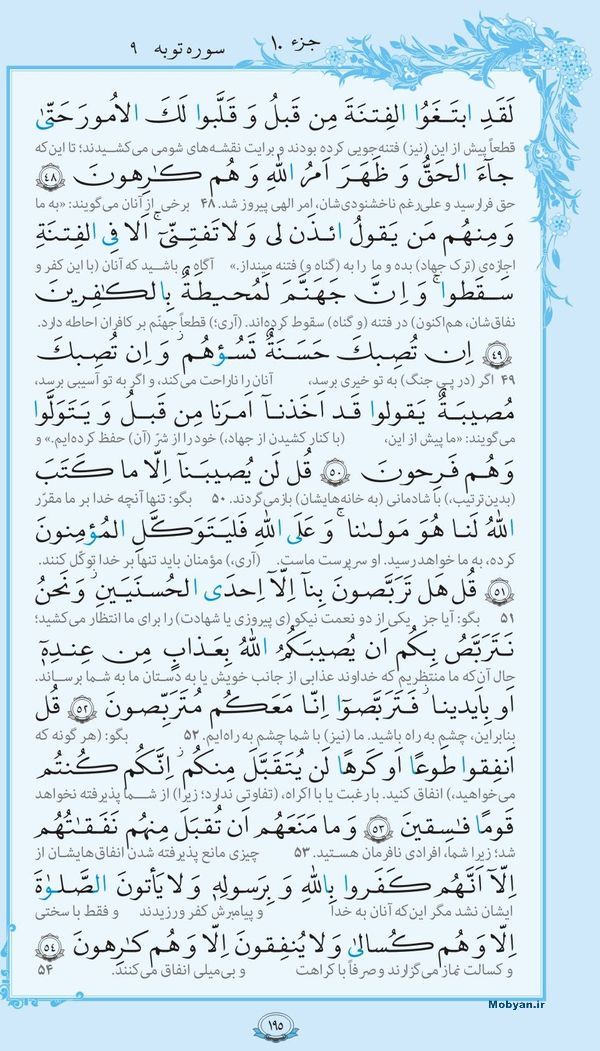 جزء ۱۰
سوره توبه ۹
لَقَدِ ابتَغَوُا الفِتنَةَ مِن قَبلُ وَ قَلَّبوا لَكَ الاُمورَ حَتّىٰ
قطعاً پیش از این (نیز) فتنه‌جویی کرده بودند و برایت نقشه‌های شومی می‌کشیدند؛ تا این‌که
جاۤءَ الحَقُّ وَ ظَهَرَ اَمرُ اللّٰهِ وَ هُم كـٰرِهونَ ﴿۴۸﴾
حق فرا رسید و علی‌رغم ناخشنودی‌شان، امر الهی پیروز شد. ۴۸ برخی از آنان می‌گویند: «به ما
وَ مِنهُم مَن يَقولُ ائذَن لى وَ لا تَفتِنّىۤ ۚ اَلا فِى الفِتنَةِ
اجازه‌ی (ترک جهاد) بده و ما را به (گناه و) فتنه مینداز.» آگاه باشید که آنان (با این کفر و
سَقَطوا ۗ وَ اِنَّ جَهَنَّمَ لَمُحيطَةٌ بِالكـٰفِرينَ
نفاق‌شان، هم‌اکنون) در فتنه (و گناه) سقوط کرده‌اند. (آری؛) قطعاً جهنّم بر کافران احاطه دارد.
﴿۴۹﴾ اِن تُصِبكَ حَسَنَةٌ تَسُؤهُم ۖ وَ اِن تُصِبكَ
۴۹ اگر (در پی جنگ) به تو خیری برسد، آنان را ناراحت می‌کند، و اگر به تو آسیبی برسد،
مُصيبَةٌ يَقولوا قَد اَخَذناۤ اَمرَنا مِن قَبلُ وَ يَتَوَلَّوا
می‌گویند: «ما پیش از این، (با کنار کشیدن از جهاد،) خود را از شرّ (آن) حفظ کرده‌ایم.» و
وَ هُم فَرِحونَ ﴿۵۰﴾ قُل لَن يُصيبَناۤ اِلّا ما كَتَبَ
(بدین‌ترتیب،) با شادمانی (به خانه‌هایشان) بازمی‌گردند. ۵۰ بگو: تنها آنچه خدا بر ما مقرّر
اللّٰهُ لَنا هُوَ مَولىٰنا ۚ وَ عَلَى اللّٰهِ فَليَتَوَكَّلِ المُؤمِنونَ
کرده، به ما خواهد رسید. او سرپرست ماست. (آری،) مؤمنان باید تنها بر خدا توکّل کنند.
﴿۵۱﴾ قُل هَل تَرَبَّصونَ بِناۤ اِلّاۤ اِحدَى الحُسنَيَينِ ۖ وَ نَحنُ
۵۱ بگو: آیا جز یکی از دو نعمت نیکو(ی پیروزی یا شهادت) را برای ما انتظار می‌کشید؛
نَتَرَبَّصُ بِكُم اَن يُصيبَكُمُ اللّٰهُ بِعَذابٍ مِن عِندِهٖۤ
حال آن‌که ما منتظریم که خداوند عذابی از جانب خویش یا به دستان ما به شما برساند.
اَو بِاَيدينا ۖ فَتَرَبَّصوۤا اِنّا مَعَكُم مُتَرَبِّصونَ ﴿۵۲﴾ قُل
بنابراین، چشم به راه باشید. ما (نیز) با شما چشم به راه‌ایم. ۵۲ بگو: (هر گونه که
اَنفِقوا طَوعًا اَو كَرهًا لَن يُتَقَبَّلَ مِنكُم ۖ اِنَّكُم كُنتُم
می‌خواهید،) انفاق کنید. با رغبت یا با اکراه، (تفاوتی ندارد؛ زیرا) از شما پذیرفته نخواهد
قَومًا فـٰسِقينَ ﴿۵۳﴾ وَ ما مَنَعَهُم اَن تُقبَلَ مِنهُم نَفَقـٰتُهُم
شد؛ زیرا شما، افرادی نافرمان هستید. ۵۳ چیزی مانع پذیرفته شدن انفاق‌هایشان از
اِلّاۤ اَنَّهُم كَفَروا بِاللّٰهِ وَ بِرَسولِهٖ وَ لا يَأتونَ الصَّلوٰةَ
ایشان نشد مگر این‌که آنان به خدا و پیامبرش کفر ورزیدند و فقط با سختی
اِلّا وَ هُم كُسالىٰ وَ لا يُنفِقونَ اِلّا وَ هُم كـٰرِهونَ ﴿۵۴﴾
و کسالت نماز می‌گزارند و صرفاً با کراهت و بی‌میلی انفاق می‌کنند. ۵۴
Mobyan.ir
۱۹۵